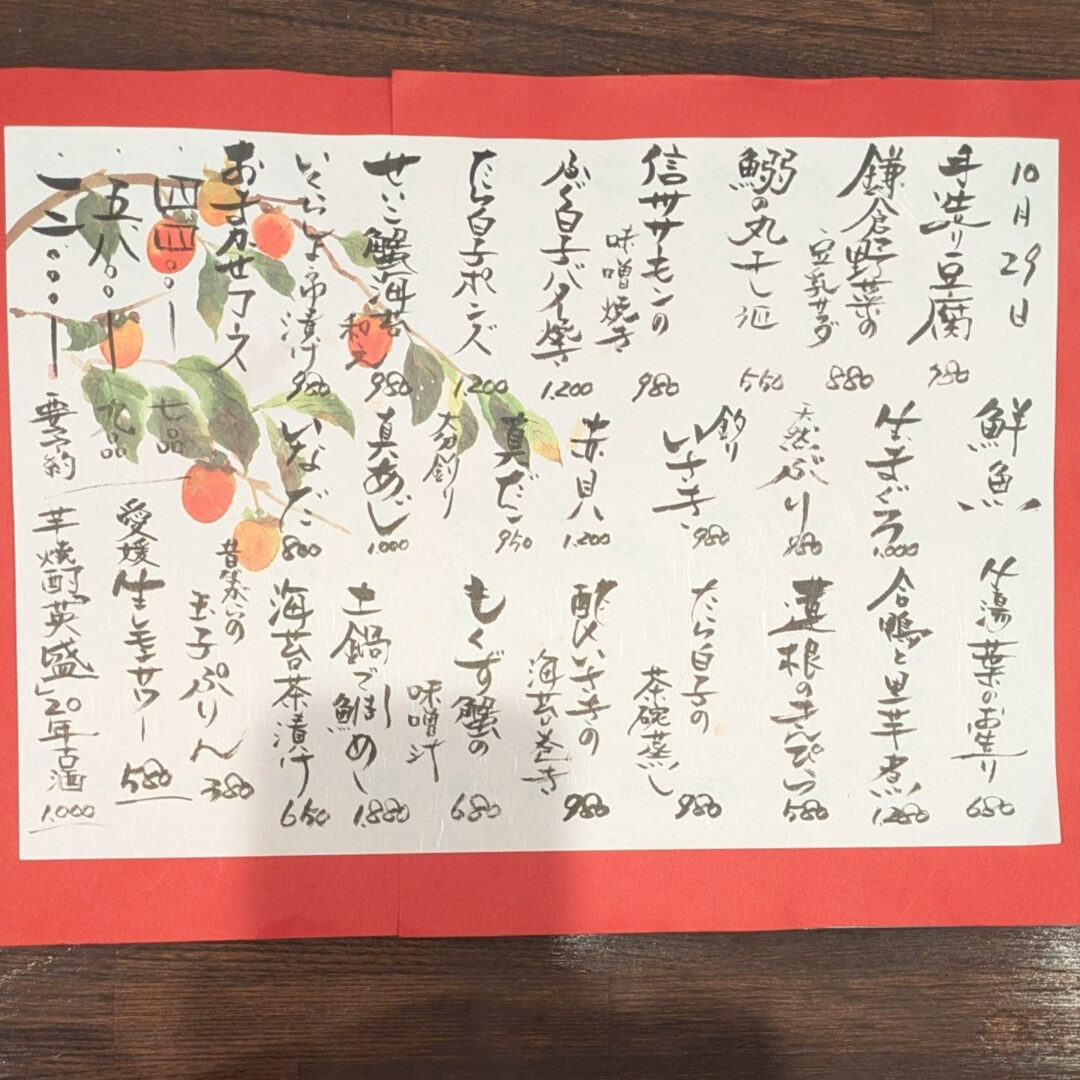 10月29日
手造り豆腐
980
鎌倉野菜の
豆乳サラダ
880
鰯の丸干し
550
信州サーモンの
味噌焼き
980
ふぐ白子バター焼き
1.200
たら白子ポンズ
1.200
せいこ蟹海苔
和え
980
いくらしょう油漬け
980
おまかせコース
四四〇〇ー
七品
五八〇〇ー
九品
一二〇〇〇ー
要予約
鮮魚
生まぐろ
1.000
天然ぶり
980
釣り
いさき
980
赤貝
1.200
真だこ
950
大分釣り
真あじ
1.000
いなだ
800
生湯葉のお造り
680
合鴨と里芋煮
1.280
蓮根のきんぴら
580
たら白子の
茶碗蒸し
980
酢〆いさきの
海苔巻き
980
もくず蟹の
味噌汁
680
土鍋で鯛めし
1.880
海苔茶漬け
650
昔ながらの
玉子ぷりん
380
愛媛生レモンサワー
580
芋焼酎「英盛」20年古酒
1.000